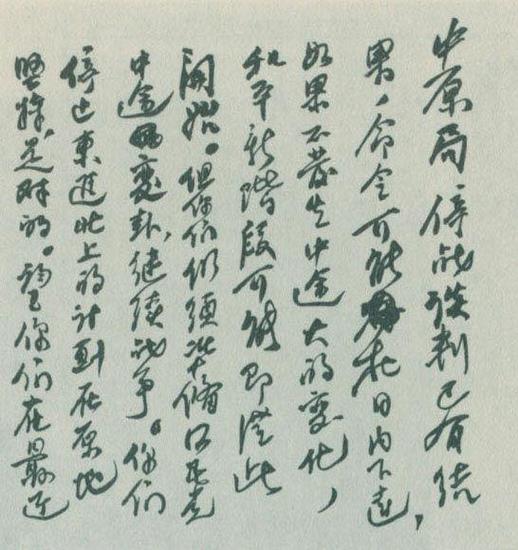 中原局 停战谈判已有结
果,命令可能在日内下达,
如果不發生中途大的变化,
和平新階段可能即從此
開始。但你们仍须准備国民党
中途变卦,继续战争。你们
停止東進北上的计劃在原地
坚持,是对的。你们在最近